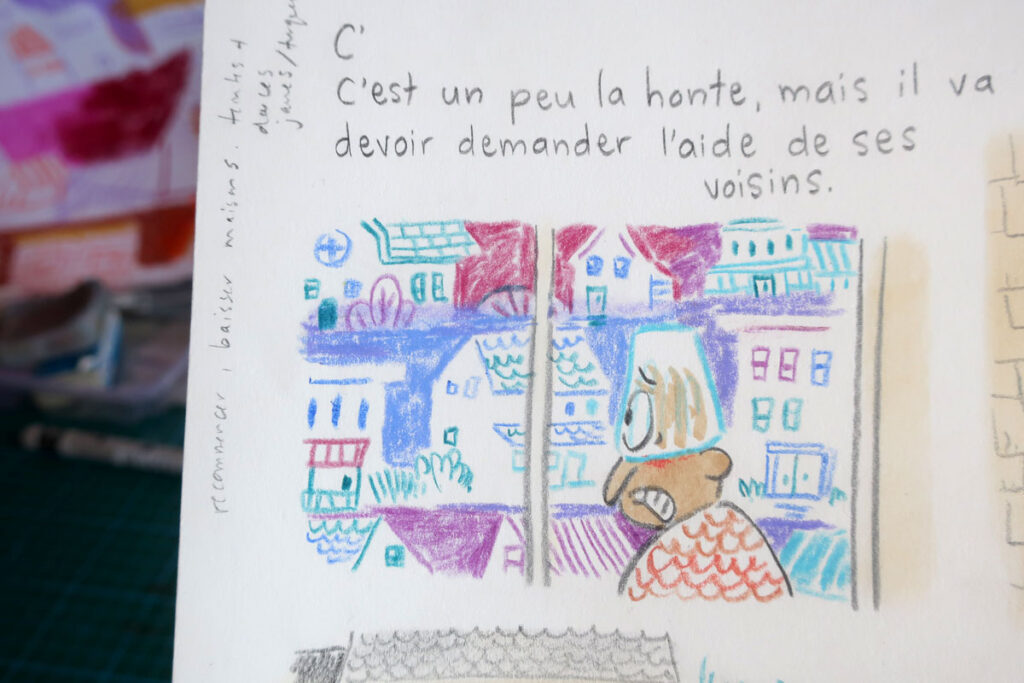 C'
C'est un peu la honte, mais il va
devoir demander l'aide de ses
voisins.
recommencer, baisser maisons.